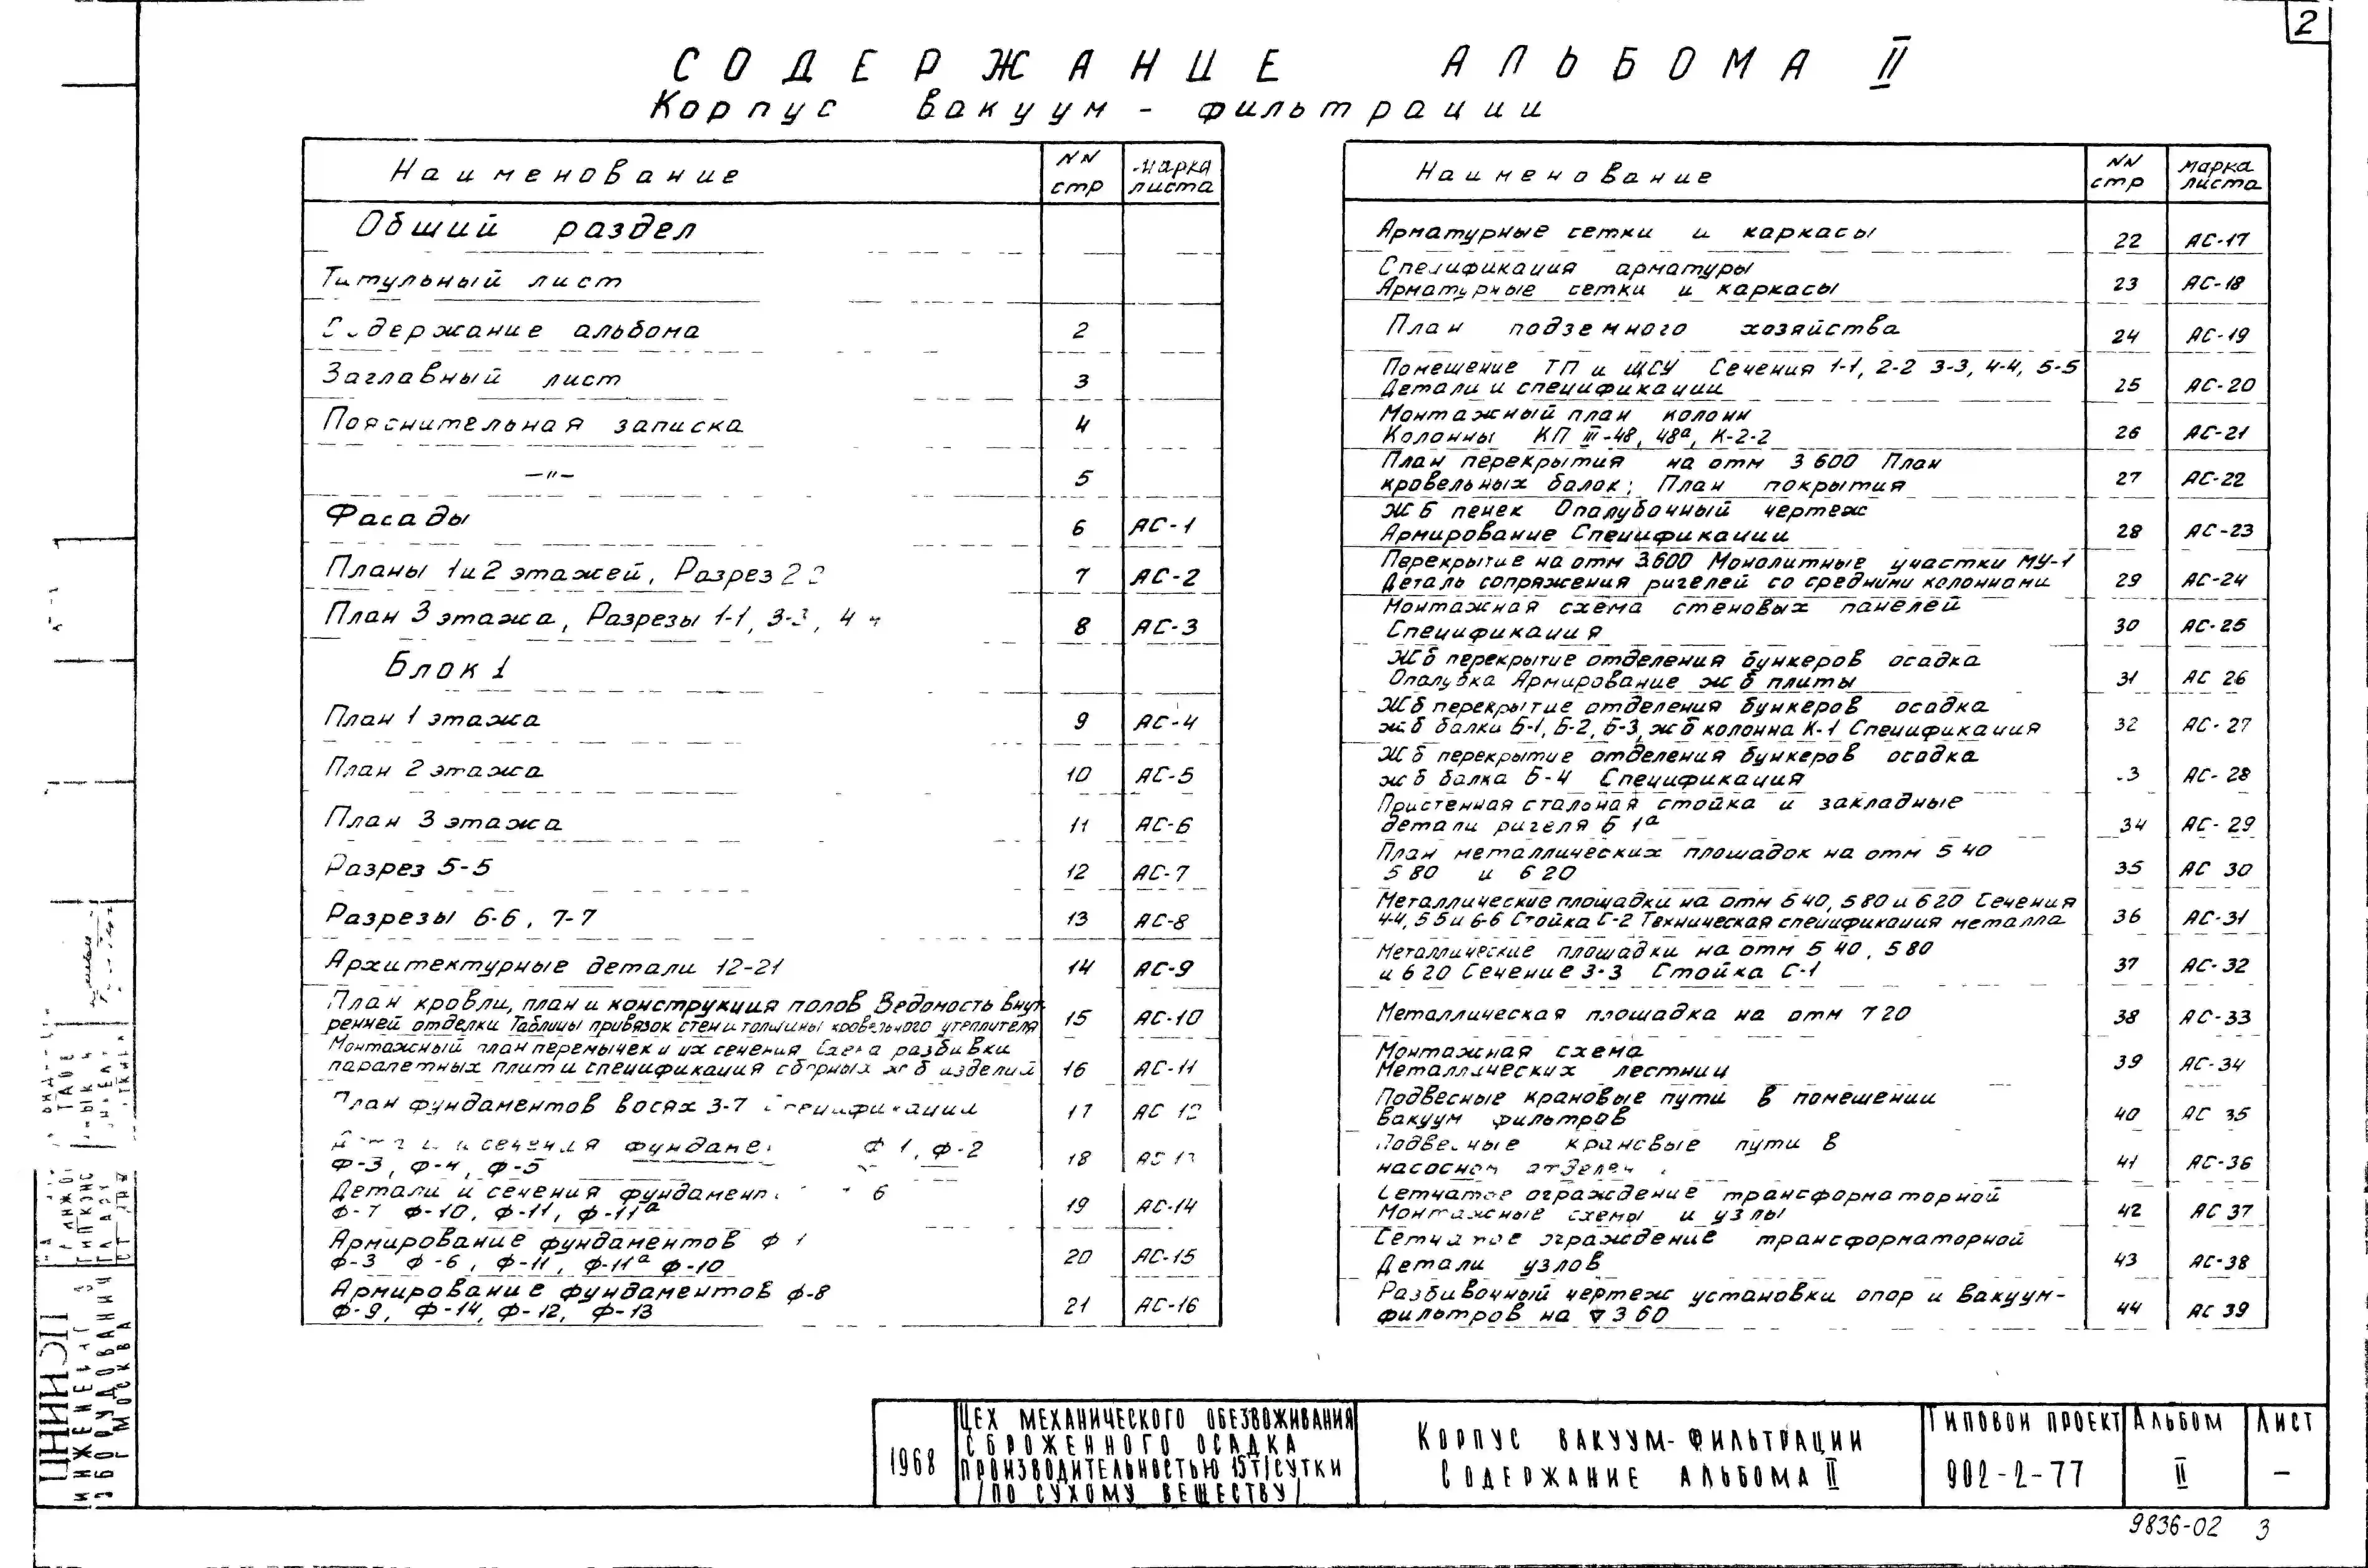 2
СОДЕРЖАНИЕ АЛЬБОМА II
Корпус вакуум-фильтрации
Наименование | NN стр | Марка листа
Общий раздел
Титульный лист
Содержание альбома | 2
Заглавный лист | 3
Пояснительная записка | 4
—"— | 5
Фасады | 6 | АС-1
Планы 1 и 2 этажей, Разрез 2 | 7 | АС-2
План 3 этажа, Разрезы 1-1, 3-3, 4 | 8 | АС-3
Блок 1
План 1 этажа | 9 | АС-4
План 2 этажа | 10 | АС-5
План 3 этажа | 11 | АС-6
Разрез 5-5 | 12 | АС-7
Разрезы 6-6, 7-7 | 13 | АС-8
Архитектурные детали 12-21 | 14 | АС-9
План кровли, план и конструкция полов Ведомость внут-
ренней отделки Таблицы привязок стен и толщины кровельного утеплителя | 15 | АС-10
Монтажный план перемычек и их сечения Схема разбивки
парапетных плит и спецификация сборных ж б изделий | 16 | АС-11
План фундаментов в осях 3-7 Спецификации | 17 | АС 12
сечения Ф 1, Ф-2
Ф-3, Ф-4, Ф-5 | 18 | АС 13
Детали и сечения фундамент 6
Ф-7 Ф-10, Ф-11, Ф-11а | 19 | АС-14
Армирование фундаментов Ф 1
Ф-3 Ф-6, Ф-11, Ф-11а Ф-10 | 20 | АС-15
Армирование фундаментов Ф-8
Ф-9, Ф-14, Ф-12, Ф-13 | 21 | АС-16
Наименование | NN стр | Марка листа
Арматурные сетки и каркасы | 22 | АС-17
Спецификация арматуры
Арматурные сетки и каркасы | 23 | АС-18
План подземного хозяйства | 24 | АС-19
Помещение ТП и ЩСУ Сечения 1-1, 2-2 3-3, 4-4, 5-5
Детали и спецификации | 25 | АС-20
Монтажный план колонн
Колонны КП III-48, 48а, К-2-2 | 26 | АС-21
План перекрытия на отм 3 600 План
кровельных балок; План покрытия | 27 | АС-22
Ж Б пенек Опалубочный чертеж
Армирование Спецификации | 28 | АС-23
Перекрытие на отм 3.600 Монолитные участки МУ-1
Деталь сопряжения ригелей со средними колоннами | 29 | АС-24
Монтажная схема стеновых панелей
Спецификация | 30 | АС-25
Ж б перекрытие отделения бункеров осадка
Опалубка Армирование ж б плиты | 31 | АС 26
Ж б перекрытие отделения бункеров осадка
ж б балки Б-1, Б-2, Б-3, ж б колонна К-1 Спецификация | 32 | АС-27
Ж б перекрытие отделения бункеров осадка
ж б балка Б-4 Спецификация | 3 | АС-28
Пристенная стальная стойка и закладные
детали ригеля Б 1а | 34 | АС-29
План металлических площадок на отм 5 40
5 80 и 6 20 | 35 | АС 30
Металлические площадки на отм 5 40, 5 80 и 6 20 Сечения
4-4, 5 5 и 6-6 Стойка С-2 Техническая спецификация металла | 36 | АС-31
Металлические площадки на отм 5 40, 5 80
и 6 20 Сечение 3-3 Стойка С-1 | 37 | АС-32
Металлическая площадка на отм 7 20 | 38 | АС-33
Монтажная схема
Металлических лестниц | 39 | АС-34
Подвесные крановые пути в помещении
Вакуум фильтров | 40 | АС 35
Подвесные крановые пути в
насосном отделен | 41 | АС-36
Сетчатое ограждение трансформаторной
Монтажные схемы и узлы | 42 | АС 37
Сетчатое ограждение трансформаторной
Детали узлов | 43 | АС-38
Разбивочный чертеж установки опор и вакуум-
фильтров на ▽ 3 60 | 44 | АС 39
1968
ЦЕХ МЕХАНИЧЕСКОГО ОБЕЗВОЖИВАНИЯ
СБРОЖЕННОГО ОСАДКА
ПРОИЗВОДИТЕЛЬНОСТЬЮ 15Т/СУТКИ
/ПО СУХОМУ ВЕЩЕСТВУ/
КОРПУС ВАКУУМ-ФИЛЬТРАЦИИ
СОДЕРЖАНИЕ АЛЬБОМА II
ТИПОВОЙ ПРОЕКТ
902-2-77
АЛЬБОМ
II
ЛИСТ
—
9836-02 3
ЦНИИЭП
ИНЖЕНЕРНОГО
ОБОРУДОВАНИЯ
Г МОСКВА